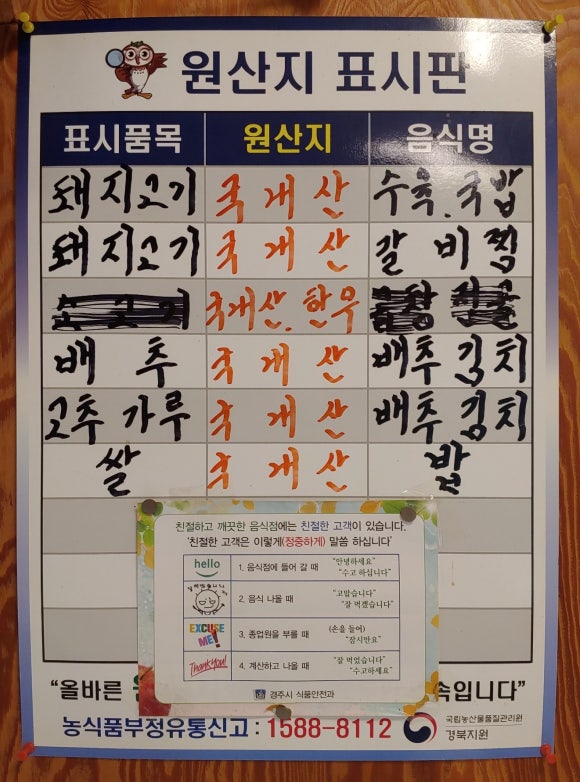 원산지 표시판
표시품목 원산지 음식명
돼지고기 국내산 수육.국밥
돼지고기 국내산 갈비찜
국내산.한우
배추 국내산 배추김치
고추가루 국내산 배추김치
쌀 국내산 밥
친절하고 깨끗한 음식점에는 친절한 고객이 있습니다.
'친절한 고객은 이렇게(정중하게) 말씀 하십니다'
hello 1. 음식점에 들어 갈 때 "안녕하세요"
"수고 하십니다"
2. 음식 나올 때 "고맙습니다"
"잘 먹겠습니다"
EXCUSE ME! 3. 종업원을 부를 때 (손을 들어)
"잠시만요"
Thank you! 4. 계산하고 나올 때 "잘 먹었습니다"
"수고하세요"
경주시 식품안전과
"올바른 속입니다"
농식품부정유통신고 : 1588-8112 국립농산물품질관리원
경북지원